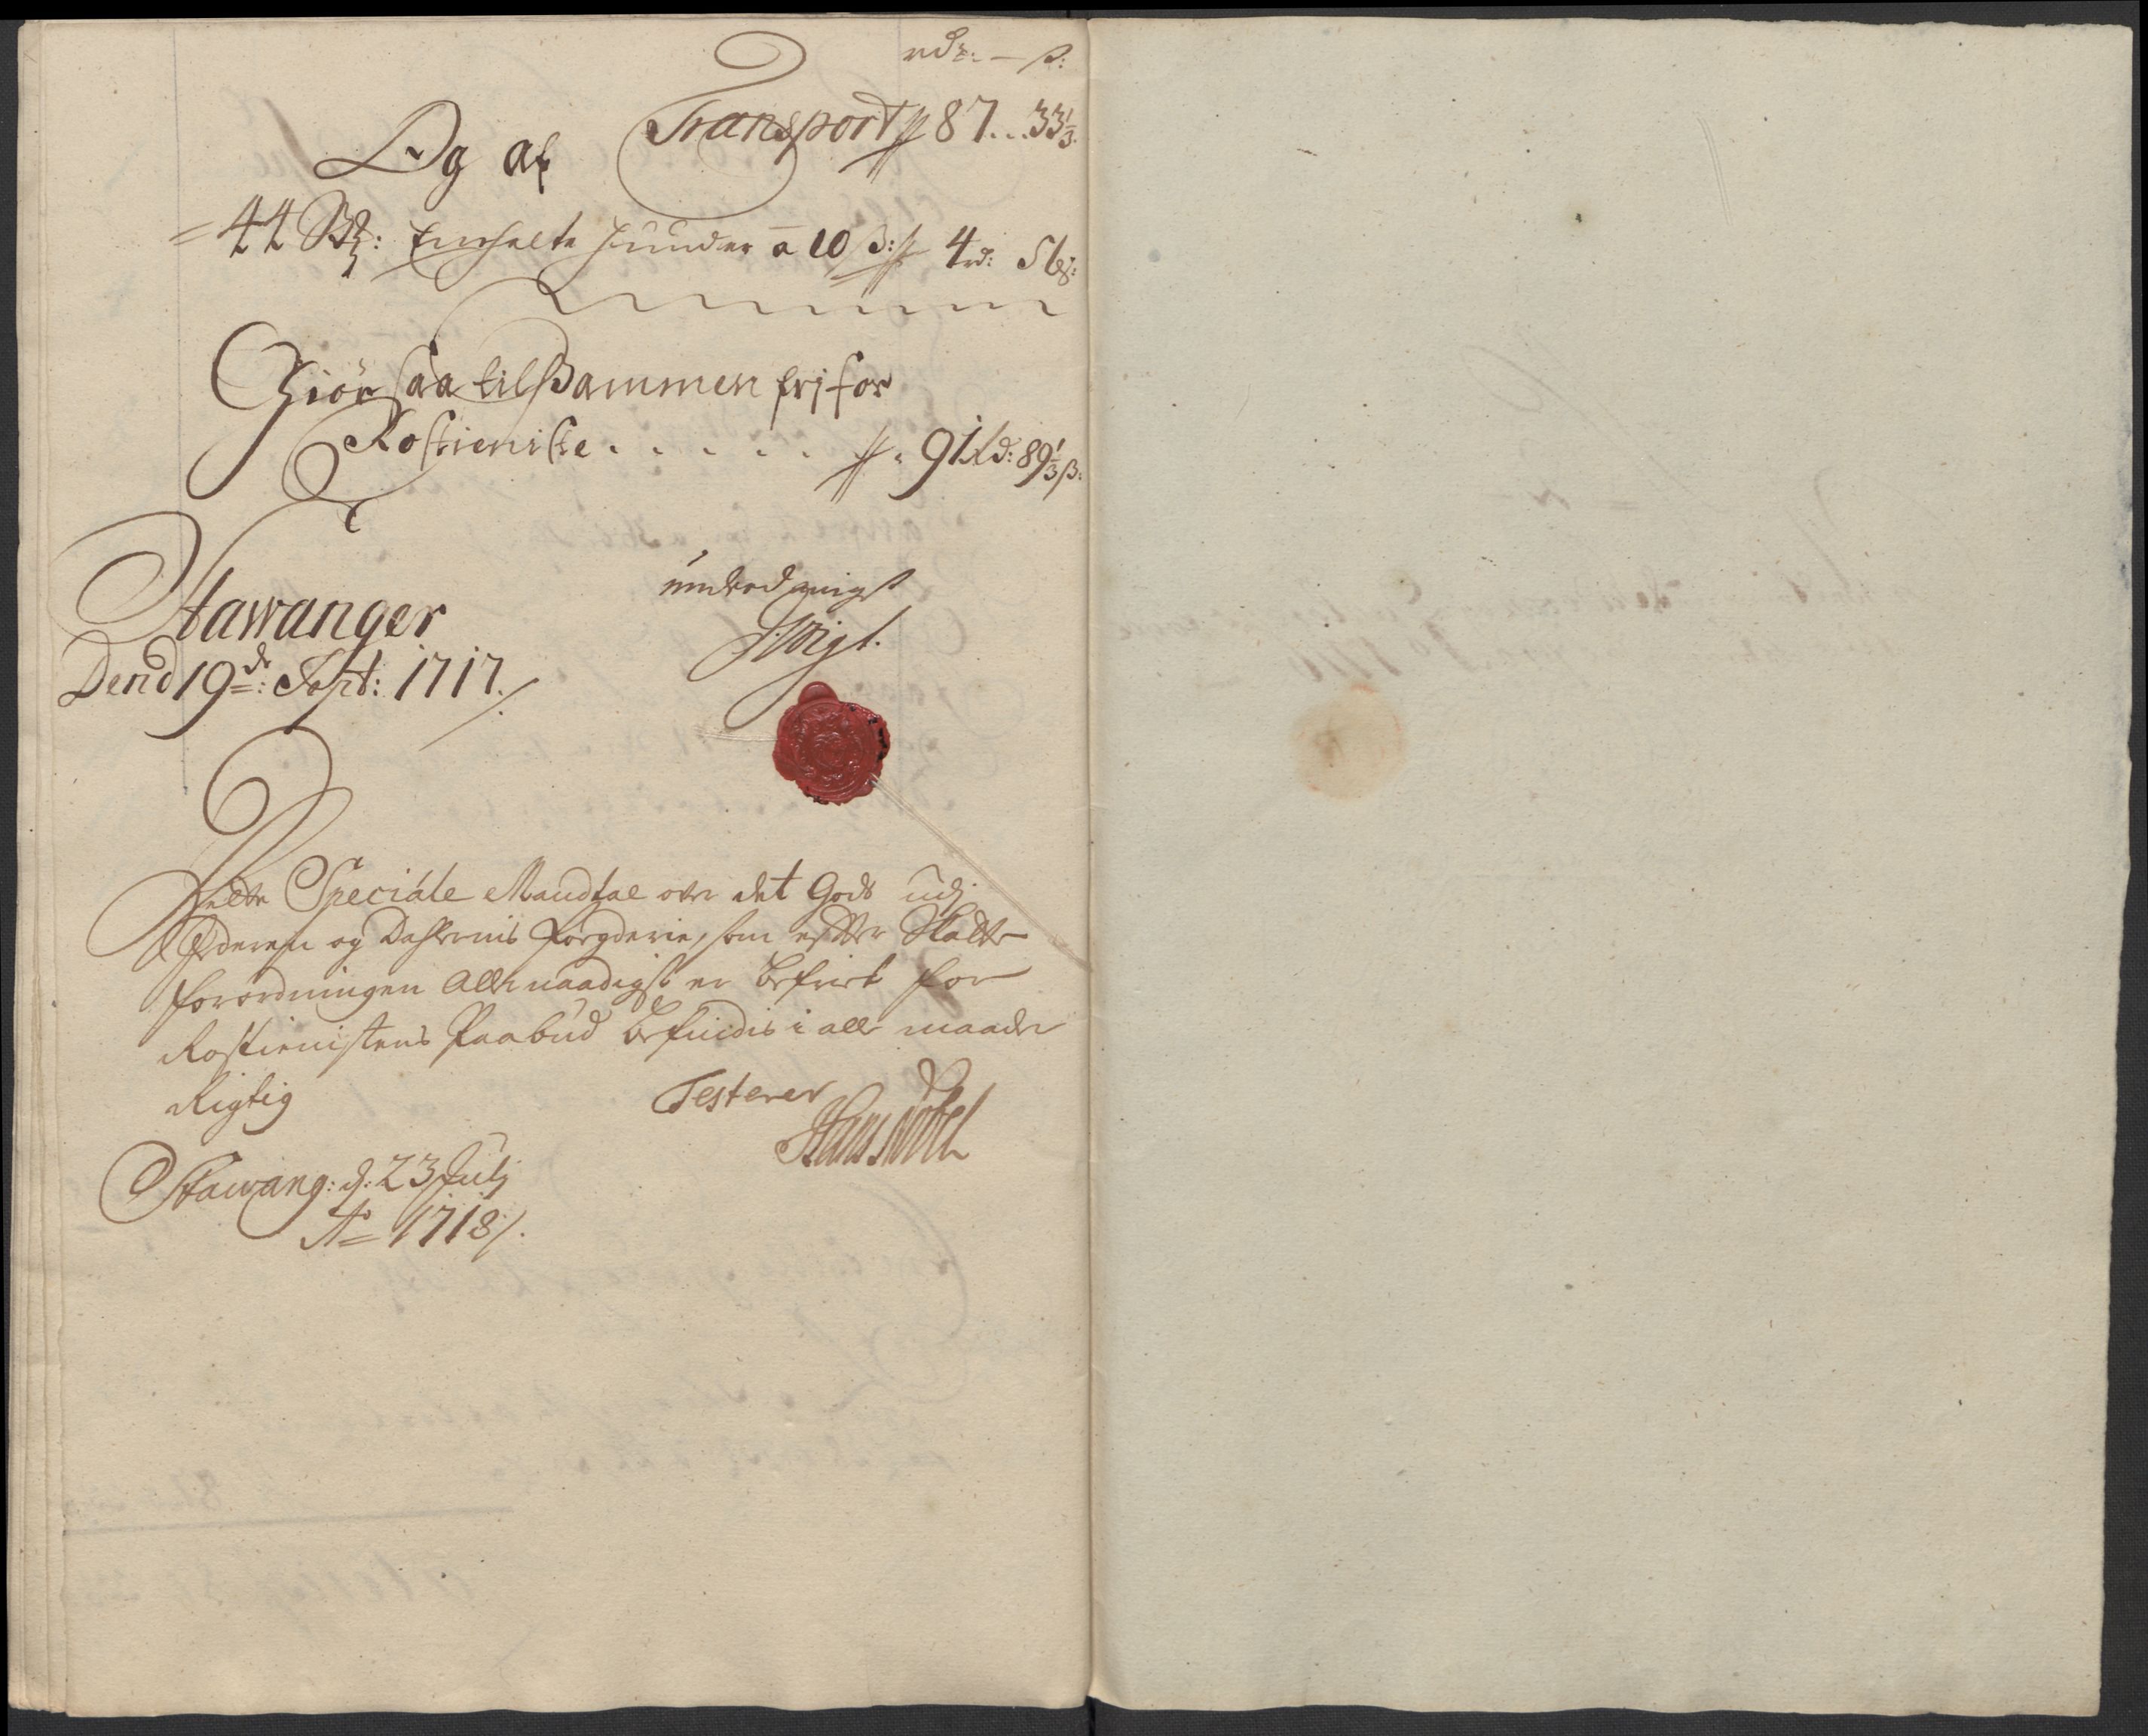 rdr: — ß:
Transport 87...33 1/3
Og af
= 44 St: Enckelte hunder a 10 ß: 4 rd: 56 ß:
Giör saa tilsammen frj for
Rostieniste . . . . . 91 rd: 89 1/3 ß:
Stawanger
Dend 19de: Sept: 1717./.
underdanigst
Voigt.
Dette Speciale Mandtal over det Gods udj
Jæderen og Dahlernis Fogderie, som efter Skatte
forordningen Allernaadigst er befriet for
Rostienistens Paabud befindis i alle maader
Rigtig
Testerer
Hans Nobel
Stawang: d: 23 Julj
Ao 1718/.